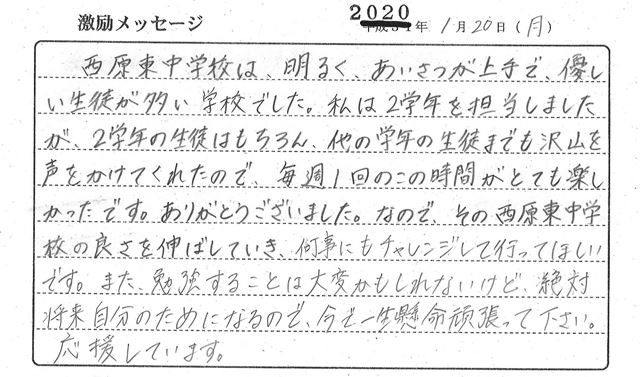 激励メッセージ
2020年 1月20日(月)
西原東中学校は、明るく、あいさつが上手で、優し
い生徒が多い学校でした。私は2学年を担当しました
が、2学年の生徒はもちろん、他の学年の生徒までも沢山を
声をかけてくれたので、毎週1回のこの時間がとても楽し
かったです。ありがとうございました。なので、その西原東中学
校の良さを伸ばしていき、何事にもチャレンジして行ってほしい
です。また、勉強することは大変かもしれないけど、絶対
将来自分のためになるので、今で一生懸命頑張って下さい。
応援しています。